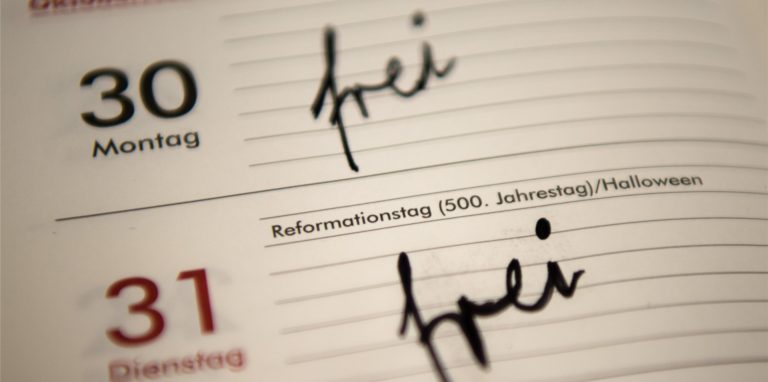 30 frei
Montag
Reformationstag (500. Jahrestag)/Halloween
31 frei
Dienstag